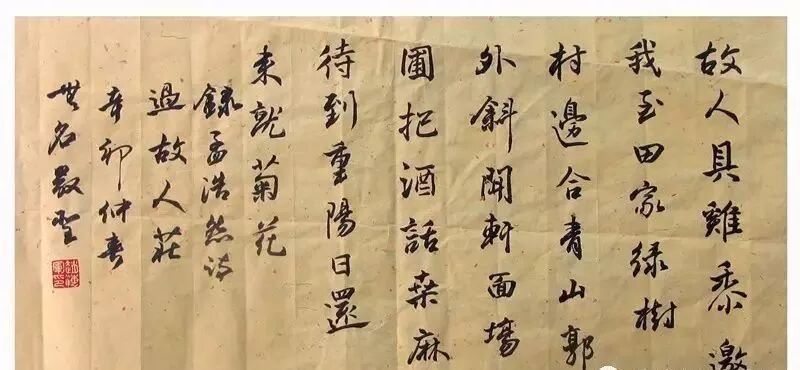 故人具雞黍邀
我至田家綠樹
村邊合青山郭
外斜開軒面場
圃把酒話桑麻
待到重陽日還
来就菊花
錄孟浩然詩
過故人莊
辛卯仲春
名